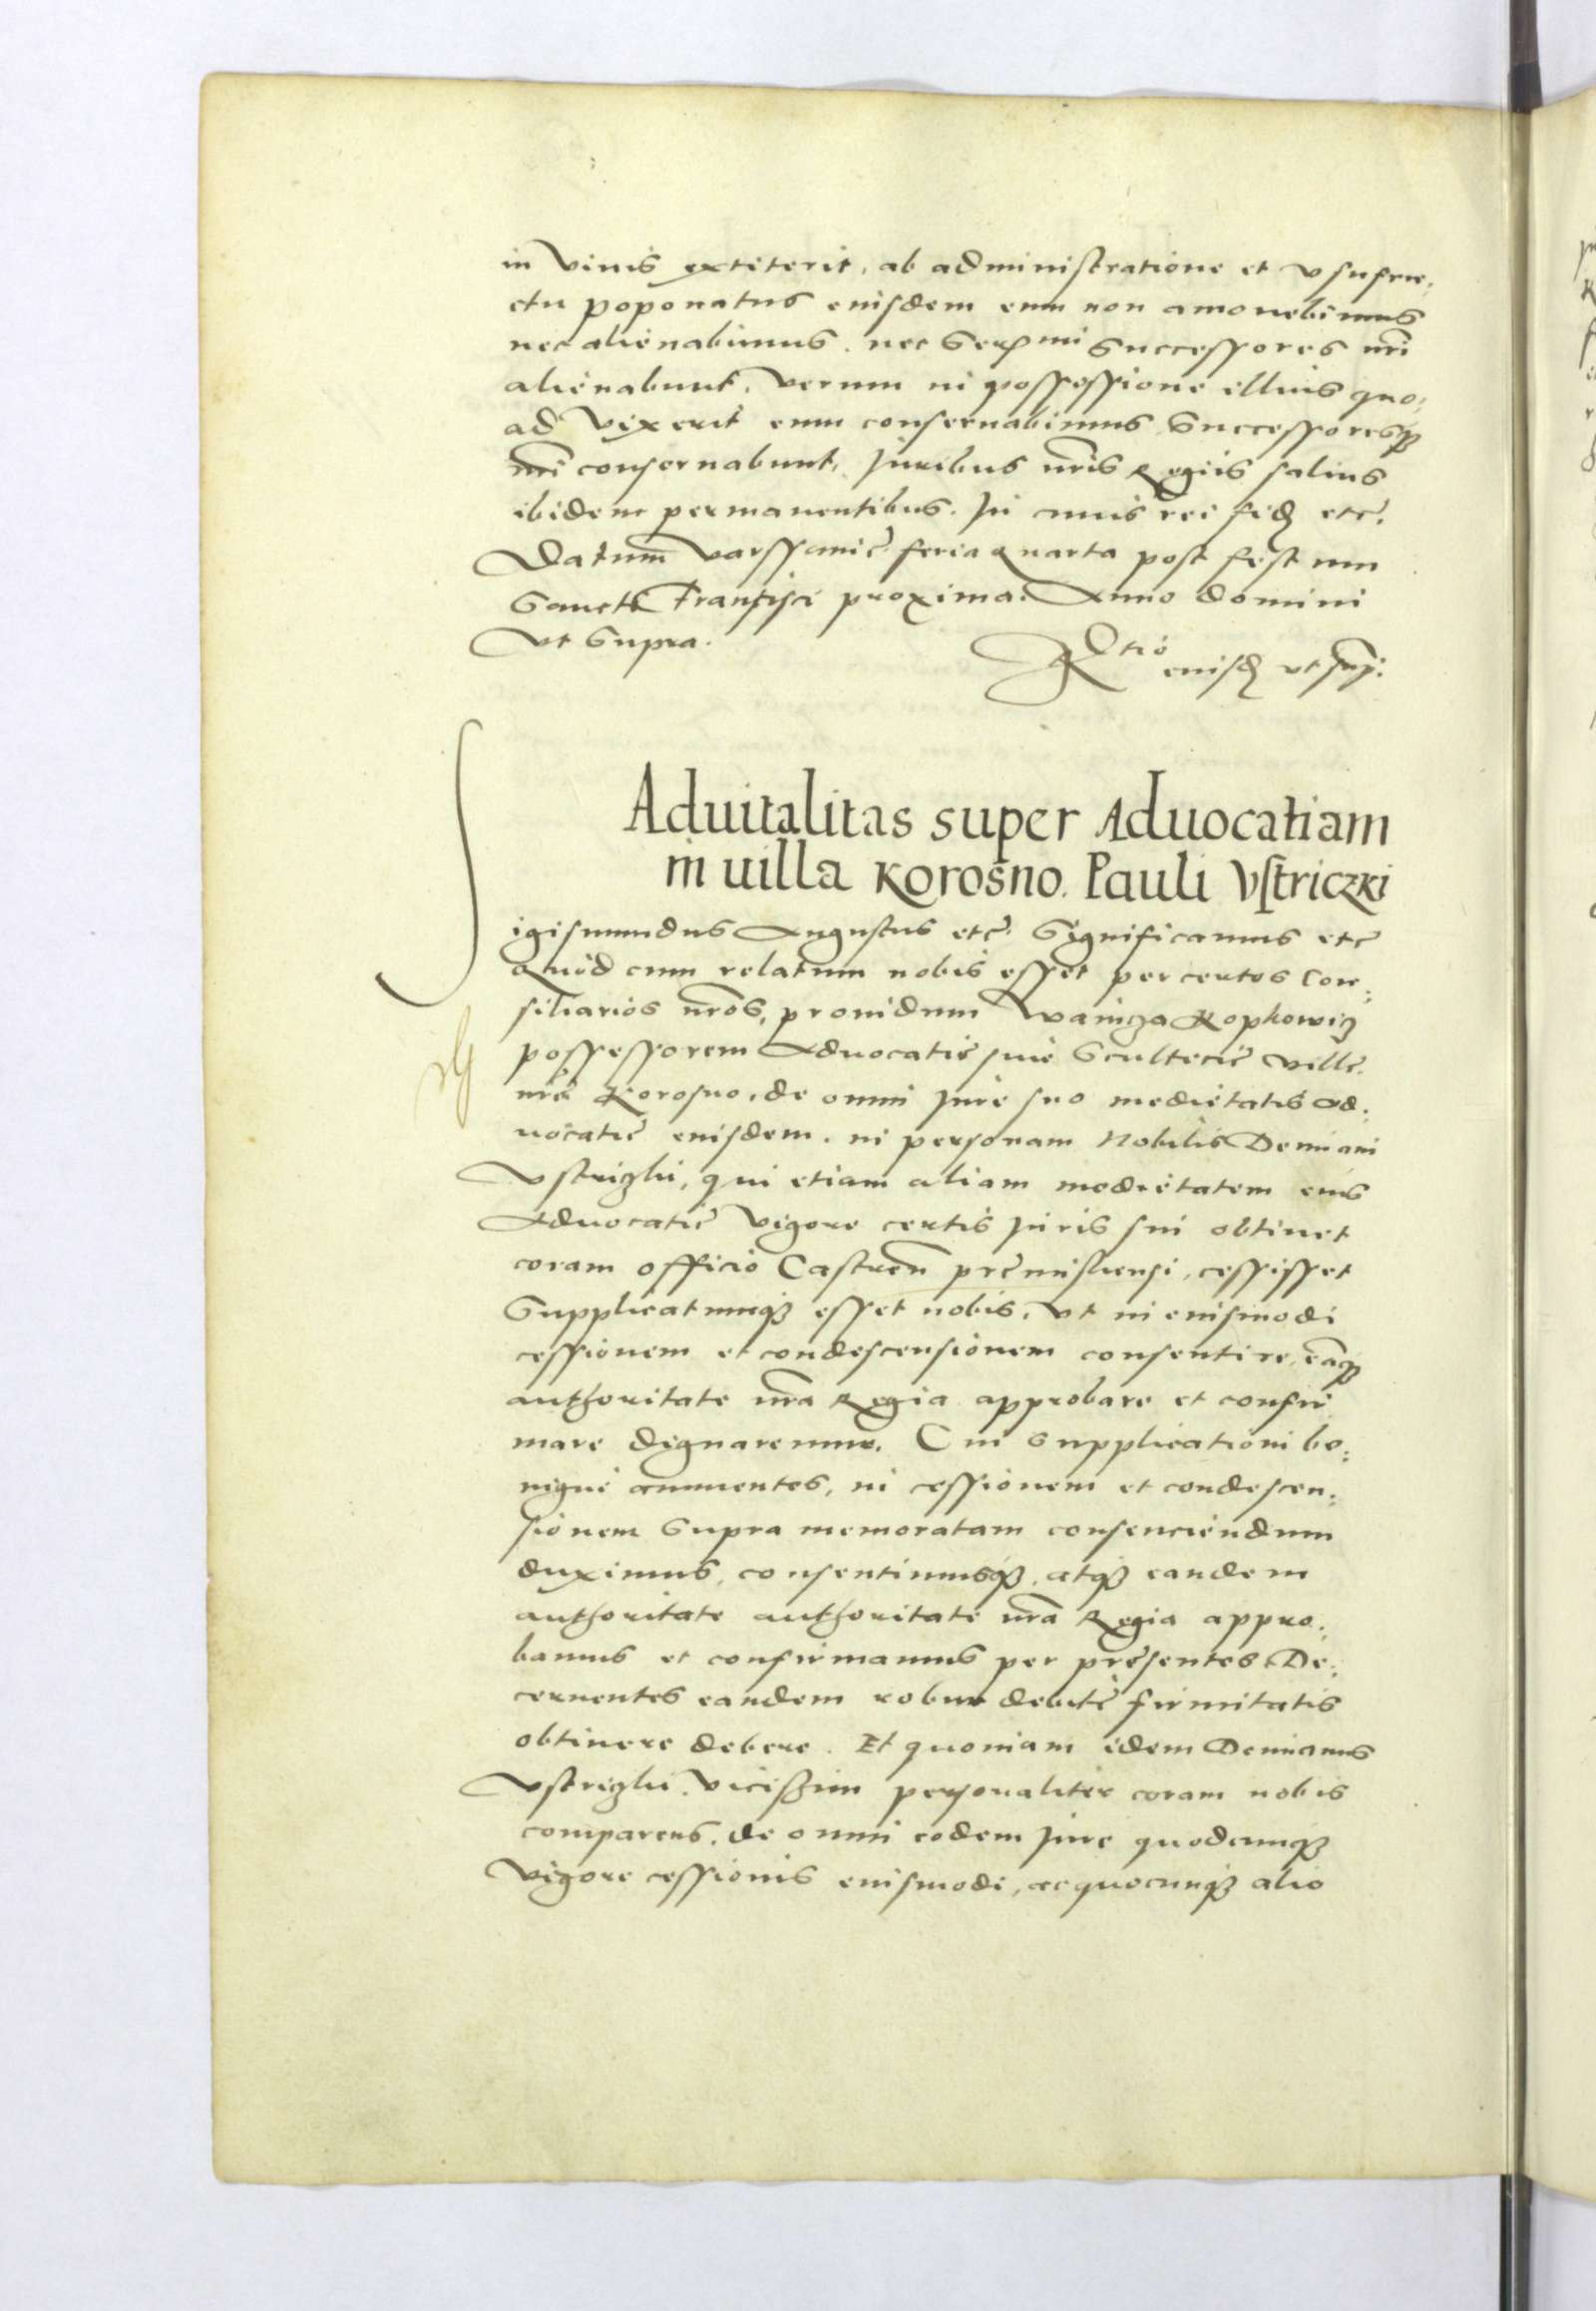 in viuis extiterit, ab administratione et vsufru:
ctu poponatus eiusdem eum non amouebimus
nec alienabimus. nec Serꝰmi Successores nr̃i
alienabunt. Verum in possessione illius quo:
ad vixerit eum conseruabimus Successoresqꝫ
nr̃i conseruabunt, Juribus nr̃is Regiis saluis
ibidem permanentibus. In cuius rei fidꝫ etc̃.
Datum̃ Varssauie feria quarta post festum
Sancti Francisci proxima. Anno domini
vt Supra.
Rtio eiusdꝫ vt sup̃:
Aduitalitas super Aduocatiam
in uilla Korosno. Pauli Vstriczki
Sigismundus Augustus etc̃. Significamus etc̃
quod cum relatum nobis esset per certos Con:
siliarios nr̃os, prouidum Wanicza Kopkowicz
possessorem Aduocatie siue Scultecie ville
nr̃e Korosno, de omni Jure suo medietatis ad:
uocatie eiusdem. in personam Nobilis Demiani
Vstrizki, qui etiam aliam medietatem eius
Aduocatie vigore certis Juris sui obtinet
coram officio Castren̄ premisliensi, cessisset
Supplicatumqꝫ esset nobis, vt in eiusmodi
cessionem et condescensionem consentire, eãqꝫ
authoritate nr̃a Regia approbare et confir
mare dignaremur. Cui supplicationi be:
nigne annuentes, in cessionem et condescen:
sionem Supra memoratam consenciendum
duximus, consentimusqꝫ, atqꝫ eandem
authoritate authoritate nr̃a Regia appro:
bamus et confirmamus per presentes. De:
cernentes eandem robur debite firmitatis
obtinere debere. Et quoniam idem Demianus
Vstrizki. vicissim personaliter coram nobis
comparens, de omni eodem Jure quodcunqꝫ
vigore cessionis eiusmodi, ac quocunqꝫ alio